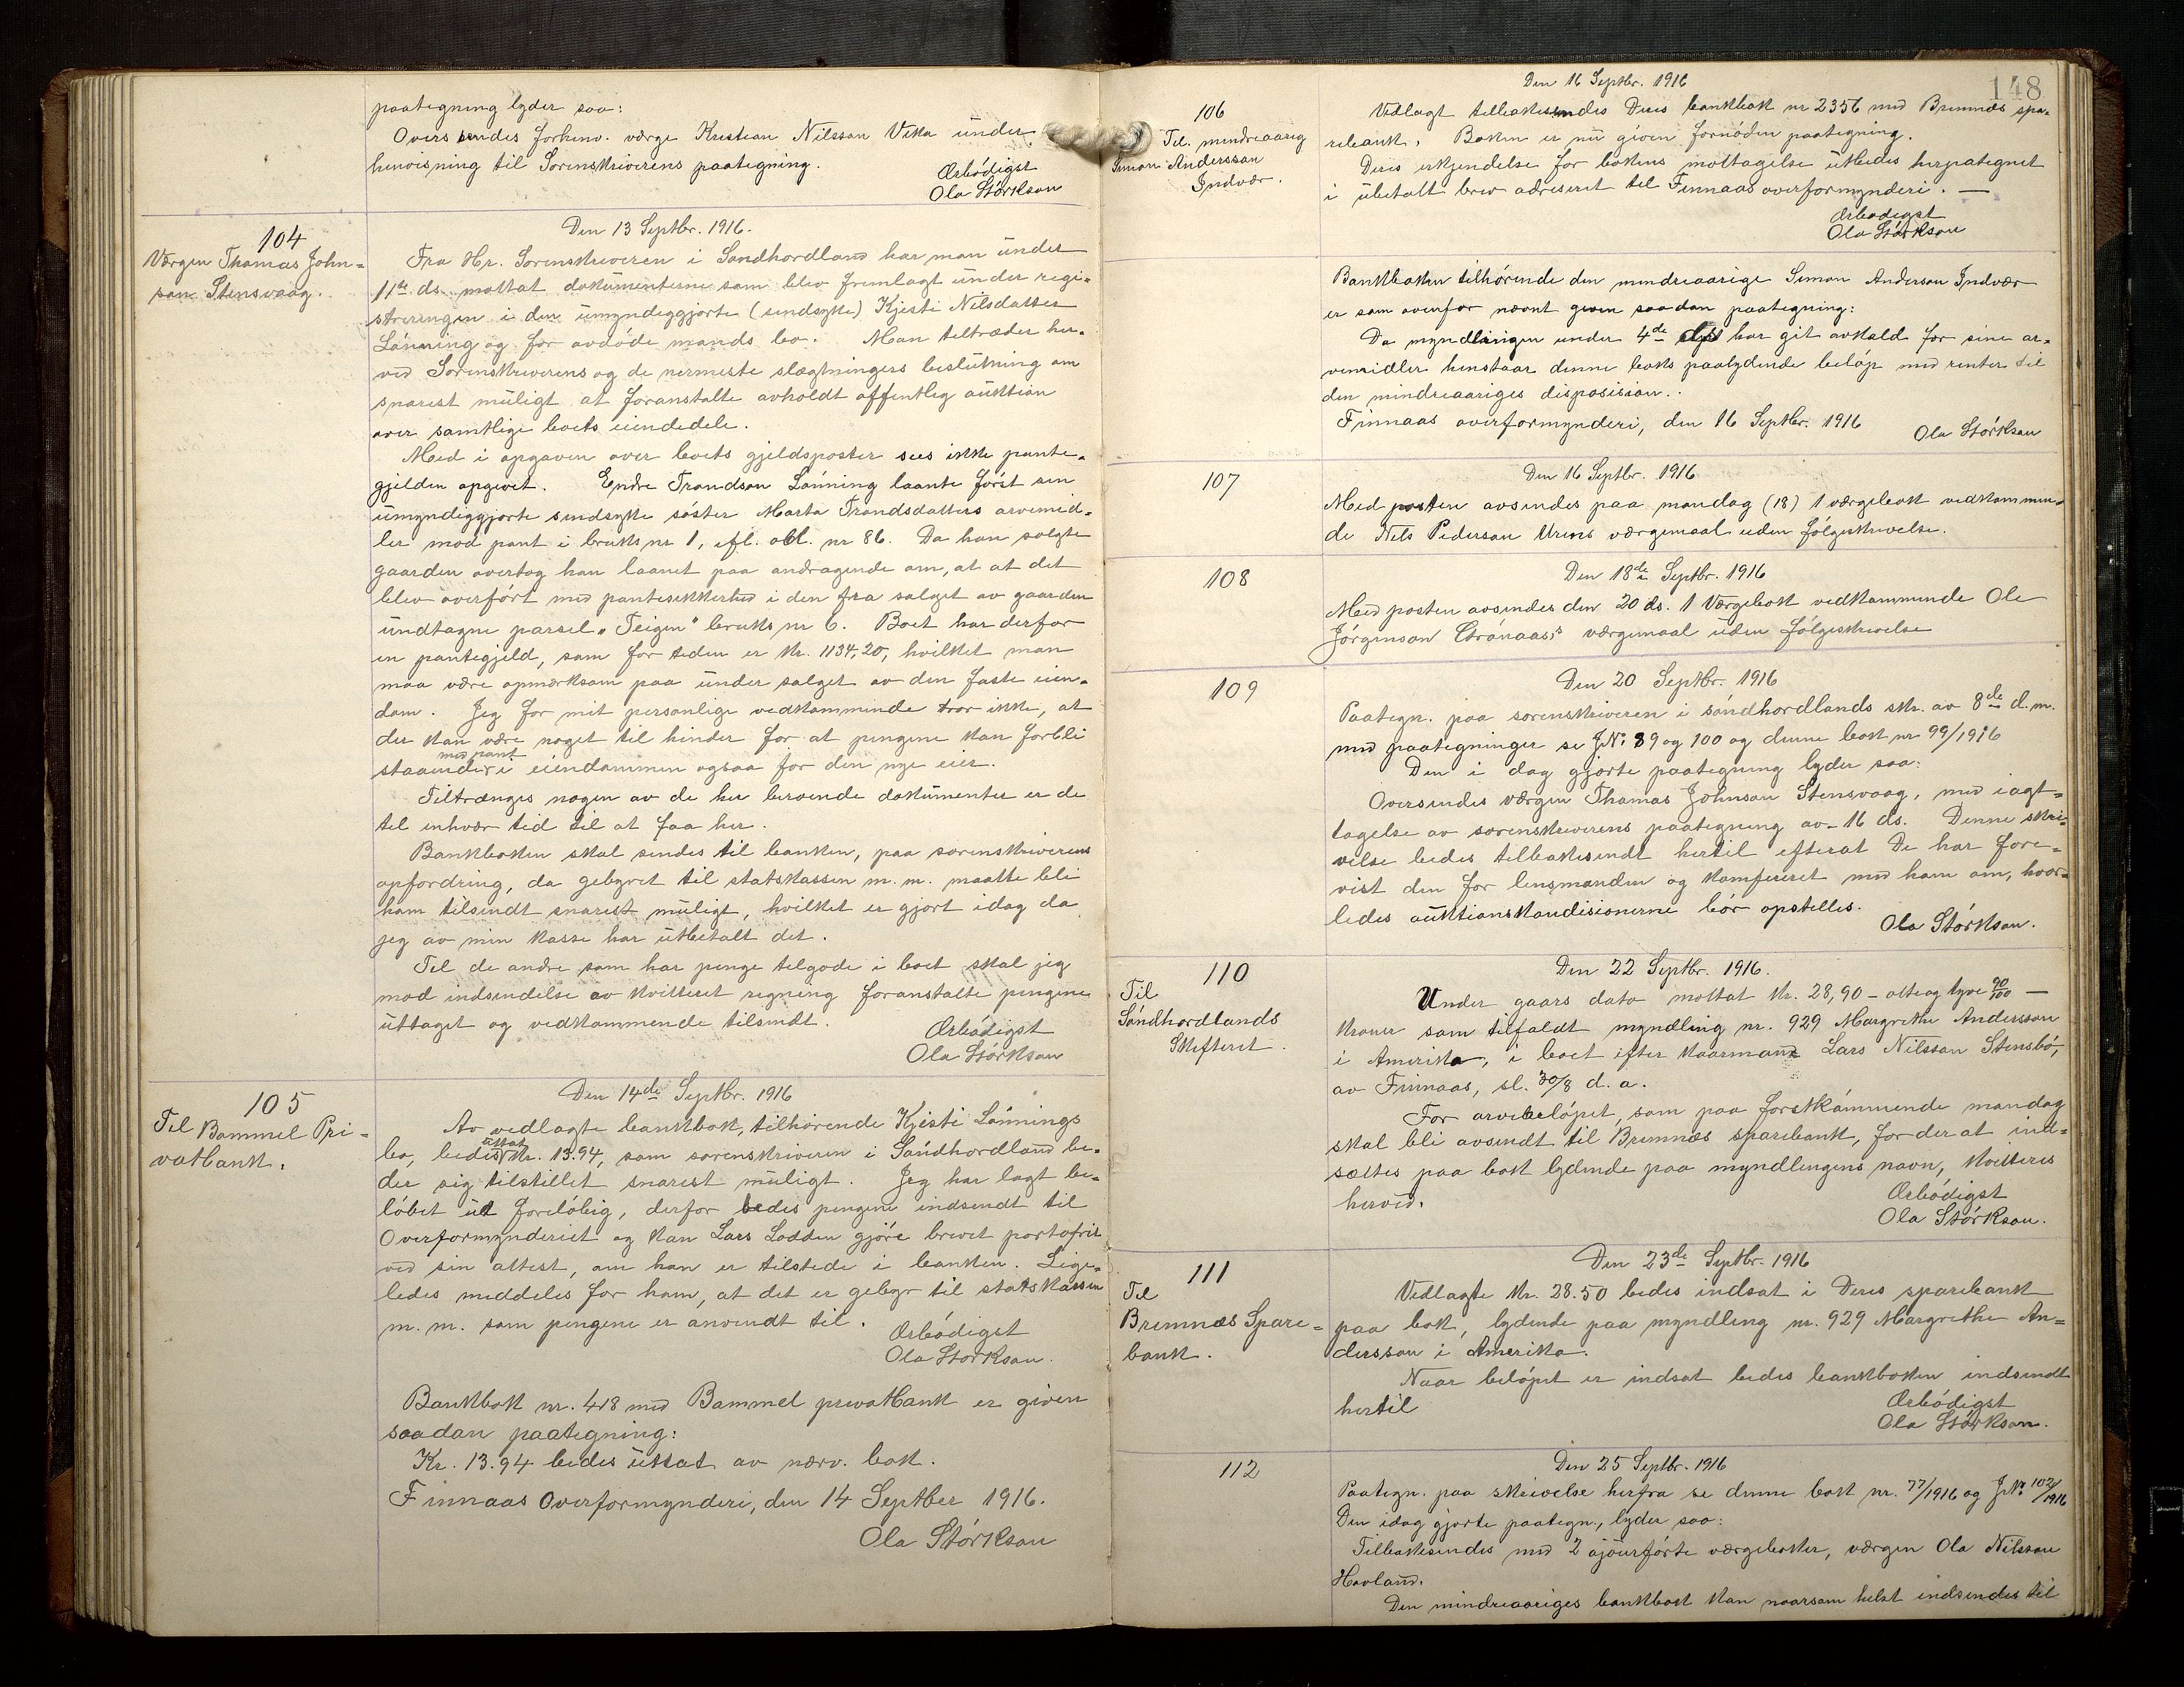 paategning lyder saa:
Oversendes forhenv. værge Kristian Nilsson Vika under
henvisning til Sorenskriverens paategning.
Ærbödigst
Ola Störkson
104
Værgen Thomas John=
son Stensvaag.
Den 13 Septbr. 1916.
Fra Hr. Sorenskriveren i Söndhordland har man under
11te ds. mottat dokumenterne som blev fremlagt under regi=
streringen i den umyndiggjorte (sindsyke) Kjesti Nilsdatter
Lönning og for avdöde mands bo. Man tiltræder her=
ved Sorenskriverens og de nermeste slægtningers beslutning om
snarest muligt at foranstalte avholdt offentlig auktion
over samtlige boets eiendele.
Med i opgaven over boets gjeldsposter sees ikke pante=
gjelden opgivet. Endre Trondson Lönning laante först sin
umyndiggjorte sindsyke söster Marta Trondsdatters arvemid=
ler mod pant i bruks nr 1, efl. obl. nr 86. Da han solgte
gaarden overtog han laanet paa andragende om, at at det
blev overfört med pantesikkerhed i den fra salget av gaarden
undtagne parsel „Teigen" bruks nr 6. Boet har derfor
en pantegjeld, som for tiden er Kr. 1134,20, hvilket man
maa være opmærksom paa under salget av den faste eien=
dom. Jeg for mit personlige vedkommende tror ikke, at
der kan være noget til hinder for at pengene kan forbli
staaende med pant i eiendommen ogsaa for den nye eier.
Tiltrænges nogen av de her beroende dokumenter er de
til enhver tid til at faa her.
Bankboken skal sendes til banken, paa sorenskriverens
opfordring, da gebyret til statskassen m. m. maatte bli
ham tilsendt snarest muligt, hvilket er gjort idag da
jeg av min kasse har utbetalt det.
Til de andre som har penge tilgode i boet skal jeg
mod indsendelse av kvitteret regning foranstalte pengene
uttaget og vedkommende tilsendt.
Ærbödigst
Ola Störkson
105
Til Bommel Pri=
vatbank.
Den 14de Septbr. 1916
Av vedlagte bankbok, tilhörende Kjesti Lönnings
bo, bedes uttat Kr. 13.94, som sorenskriveren i Söndhordland be=
der sig tilstillet snarest muligt. Jeg har lagt be=
löbet ut forelöbig, derfor bedes pengene indsendt til
Overformynderiet og kan Lars Lodden gjöre brevet portofrit
ved sin attest, om han er tilstede i banken. Lige=
ledes meddeles for ham, at det er gebyr til statskassen
m. m. som pengene er anvendt til.
Ærbödigst
Ola Störkson.
Bankbok nr. 418 med Bommel privatbank er given
saadan paategning:
Kr. 13.94 bedes uttat av nærv. bok.
Finnaas Overformynderi, den 14 Septber 1916.
Ola Störkson
148
106
Til mindreaarig
Simon Andersson
Indvær.
Den 16 Septbr. 1916
Vedlagt tilbakesendes Deres bankbok nr 2356 med Bremnæs spa=
rebank. Boken er nu given fornöden paategning.
Deres erkjendelse for bokens mottagelse utbedes herpategnet
i ubetalt brev adreseret til Finnaas overformynderi. —
Ærbödigst
Ola Störkson
Bankboken tilhörende den mindreaarige Simon Anderson Indvær
er som ovenfor nævnt given saadan paategning:
Da myndlingen under 4de dse har git avkald for sine ar=
vemidler henstaar denne boks paalydende belöp med renter til
den mindreaariges disposision.
Finnaas overformynderi, den 16 Septbr. 1916
Ola Störkson
107
Den 16 Septbr. 1916
Med posten avsendes paa mandag (18) 1 værgebok vedkommen=
de Nils Pederson Urens værgemaal uden fölgeskrivelse.
108
Den 18de Septbr. 1916
Med posten avsendes den 20 ds. 1 Værgebok vedkommende Ole
Jörgenson Grönaas's værgemaal uden fölgeskrivelse
109
Den 20 Septbr. 1916
Paategn. paa sorenskriveren i söndhordlands skr. av 8de d.m.
med paategninger se JNr 89 og 100 og denne bok nr 99/1916
Den i dag gjorte paategning lyder saa:
Oversendes værgen Thomas Johnson Stensvaag, med iagt=
tagelse av sorenskriverens paategning av 16 ds. Denne skri=
velse bedes tilbakesendt hertil efterat De har fore=
vist den for lensmanden og konfereret med ham om, hvor=
ledes auktionskondisionerne bör opstilles.
Ola Störkson.
110
Til
Söndhordlands
Skifteret.
Den 22 Septbr. 1916.
Under gaars dato mottat Kr. 28,90 – otteog tyve 90/100 —
kroner som tilfaldt myndling nr. 929 Margrethe Andersson
i Amerika, i boet efter kaarmand Lars Nilsson Stensbö,
av Finnaas, sl. 30/8 d. a.
For arvebelöpet, som paa förstkommende mandag
skal bli avsendt til Bremnæs sparebank, for der at ind=
sættes paa bok lydende paa myndlingens navn, kvitteres
herved.
Ærbödigst
Ola Störkson.
111
Til
Bremnæs Spare=
bank.
Den 23de Septbr. 1916
Vedlagte Kr. 28.50 bedes indsat i Deres sparebank
paa bok, lydende paa myndling nr. 929 Margrethe An=
dersson i Amerika.
Naar belöpet er indsat bedes bankboken indsendt
hertil
Ærbödigst
Ola Störkson.
112
Den 25 Septbr. 1916
Paategn. paa skrivelse herfra se denne bok nr. 77/1916 og JNr 102/1916
Den idag gjorte paategn., lyder saa:
Tilbakesendes med 2 ajourförte værgeboker, værgen Ola Nilsson
Hovland.
Den mindreaariges bankbok kan naarsom helst indsendes til